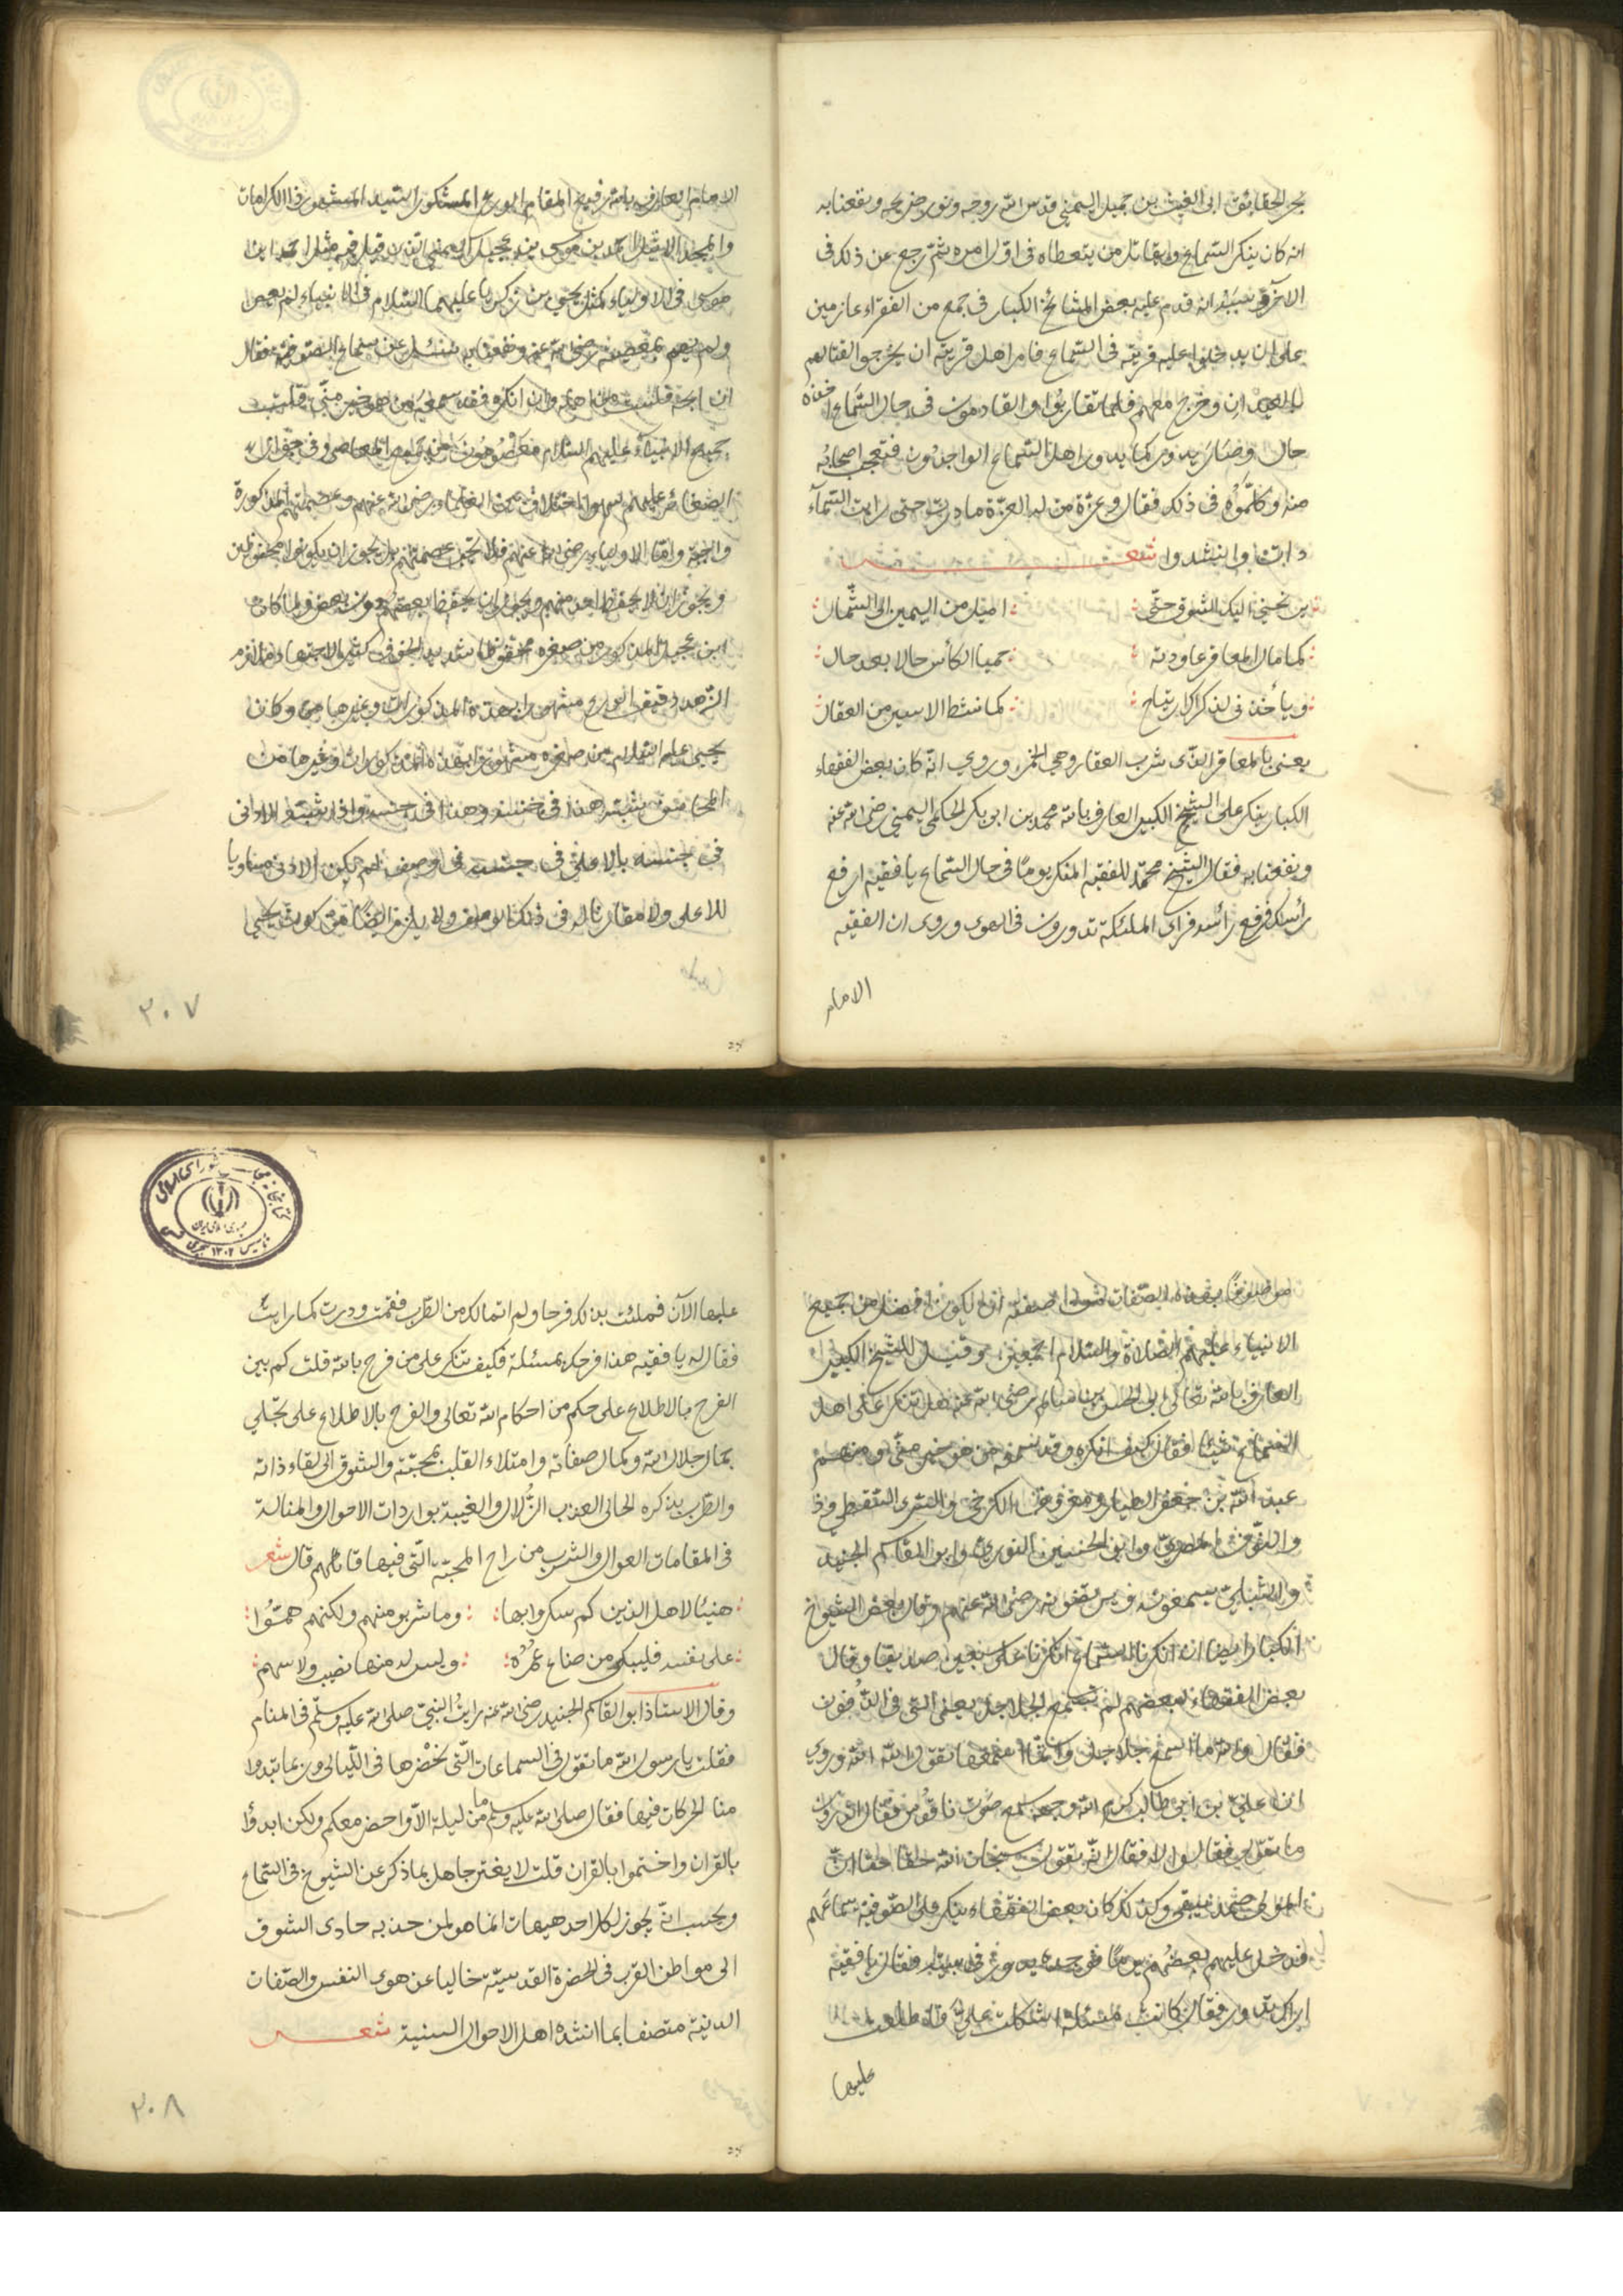 بحر الحقايق ابى الغيث بن جميل اليمني قدس الله روحه ونور ضريحه ونفعنا به
انه كان ينكر السماع ويقاتل من يتعطاه فى اول امره ثم رجع عن ذلك فى
الاخرة بسبب انه قدم عليه بعض المشائخ الكبار فى جمع من الفقراء عازمين
على ان يدخلوا عليه قريته فى السماع فامر اهل قريته ان يخرجوا لقتالهم
وخرج معهم فلما تقاربوا والقادمون فى حال السماع اخذه
حال وصار يدور كما يدور اهل السماع الواجدون فتعجب اصحابه
منه وكلموه فى ذلك فقال وعزة من له العزة ما درت حتى رايت السماء
دارت وانشدوا شعر
يرنحني اليك الشوق حتى اميل من اليمين الى الشمال
كما مال المعاقر عاودته حميا الكأس حالا بعد حال
ويأخذنى لذكراك ارتياح كما نشط الاسير من العقال
يعنى بالمعاقر الذى شرب العقار وهى الخمر وروي انه كان بعض الفقهاء
الكبار ينكر على الشيخ الكبير العارف بالله محمد بن ابو بكر الحكمى اليمني رضى الله عنه
ونفعنا به فقال الشيخ محمد للفقيه المنكر يوما فى حال السماع يا فقيه ارفع
رأسك فرفع رأسه فراى الملئكة تدورون فى الهوى وروى ان الفقيه
الامام
الامام العارف بالله رفيع المقام الورع المشكور السيد المشهور فى الكرامات
والمجد الاثيل احمد بن موسى بن عجيل اليمني الذى قيل فيه مثل احمد ابن
موسى فى الاولياء كمثل يحيى بن زكريا عليهما السلام فى الانبياء لم يعص
ولم يهم بمعصية رضى الله عنه ونفعنا به سئل عن سماع الصوفية فقال
ان ابحه فلست من اهله وان انكره فقد سمعه من هو خير منى قلت
جميع الانبياء عليهم السلام معصومون من جميع المعاصى وفى جواز
الصغائر عليهم سهوا اختلاف بين العلماء رضى الله عنهم وعصمتهم المذكورة
واجبة واما الاولياء رضى الله عنهم فلا يجب عصمتهم بل يجوز ان يكونوا محفوظين
ويجوز ان لا يحفظ احد منهم ويجوز ان يحفظ بعضهم دون بعض ولما كان
ابن عجيل المذكور من صغره محفوظا شديد الخوف كثير الاجتهاد ملازم
الزهد دقيق الورع مشهورا بهذه المذكورات وغيرها من وكان
يحيى عليه السلام من صغره مشهورا بهذه المذكورات وغيرها من
المحاسن شبه هذا فى جنسه وهذا فى جنسه واذا شبه الادنى
فى جنسه بالاعلى فى جنسه فى وصف لم يكن الادنى مساويا
للاعلى ولا مقاربا له فى ذلك الوصف ولا يلزم ايضا من كون يحيى
٣٠٧
موصوفا بهذه الصفات ان يكون افضل من جميع
الانبياء عليهم الصلاة والسلام اجمعين وقيل للشيخ الكبير
العارف بالله تعالى ابى الحسن بن سالم رضى الله عنه هل تنكر على اهل
السماع شيئا فقال كيف انكره وقد سمعه من هو خير منى ومنهم
عبد الله بن جعفر الطيار ومعروف الكرخى والسرى السقطى وذ
والنون المصرى وابو الحسين النورى وابو القاسم الجنيد
والشبلى يسمعون رضى الله عنهم وقال بعض الشيوخ
الكبار ايضا ان انكرنا السماع انكرنا على سبعين صديقا وقال
بعض الفقهاء لبعضهم لم تسمع الجلاجل يعنى التى فى الدفوف
فقال والله ما اسمع جلاجل وانما اسمعها تقول الله الله وروي
ان على بن ابى طالب كرم الله وجهه سمع صوت ناقوس فقال اتدرون
ما تقول فقالوا لا فقال انه تقول سبحان الله حقا حقا ان
المولى صمد يبقى وكذلك كان بعض الفقهاء ينكر على الصوفية سماعهم
فدخل عليهم بعضهم يوما فوجده يدور فى بيته فقال يا فقيه
اراك تدور فقال كانت مسئلة اشكلت على والله طلعت
عليها
عليها الآن فملئت بذلك فرحا ولم اتمالك من الطرب فقمت ودرت كما رايت
فقال له يا فقيه هذا فرحك بمسئلة فكيف تنكر على من فرح بالله قلت كم بين
الفرح بالاطلاع على حكم من احكام الله تعالى والفرح بالاطلاع على تجلي
جمال جلال الله وكمال صفاته وامتلاء القلب بمحبته والشوق الى لقاء ذاته
والطرب بذكره الحالى العذب الزلال والغيبة بواردات الاحوال والمنالة
فى المقامات العوال والشرب من راح المحبة التى فيها قائلهم قال شعر
هنيئا لاهل الذين كم سكروا بها وما شربو منهم ولكنهم همّوا
على نفسه فليبكى من ضاع عمره وليس له منها نصيب ولا سهم
وقال الاستاذ ابو القاسم الجنيد رضى الله عنه رايت النبى صلى الله عليه وسلم فى المنام
فقلت يا رسول الله ما تقول فى السماعات التى نحضرها فى الليالى وربما تبدوا
منا الحركات فيها فقال صلى الله عليه وسلم ما من ليلة الا واحضر معكم ولكن ابدؤا
بالقران واختموا بالقران قلت لا يغتر جاهل بما ذكر عن الشيوخ فى السماع
ويحسب انه يجوز لكل احد هيهات انما هو لمن حدبه حادى الشوق
الى مواطن القرب فى الحضرة القدسية خاليا عن هوى النفس والصفات
الدنية متصفا بما انشده اهل الاحوال السنية شعر
٣٠٨